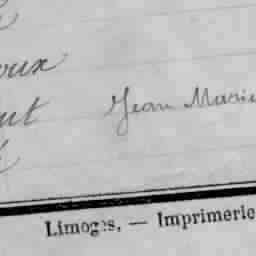 oux
ut Jean Marie
Limoges, — Imprimerie